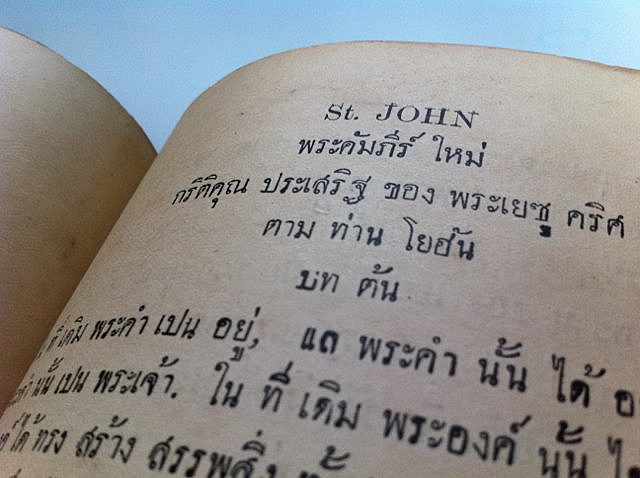 St. JOHN
พระคัมภีร์ ใหม่
กริติคุณ ประเสริฐ ของ พระเยซู คริศ
ตาม ท่าน โยฮัน
บท ต้น
ที่ เดิม พระคำ เปน อยู่, แต พระคำ นั้น ได้
นั้น เปน พระเจ้า. ใน ที่ เดิม พระองค์ นั้น
ได้ ทรง สร้าง สรรพสิ่ง